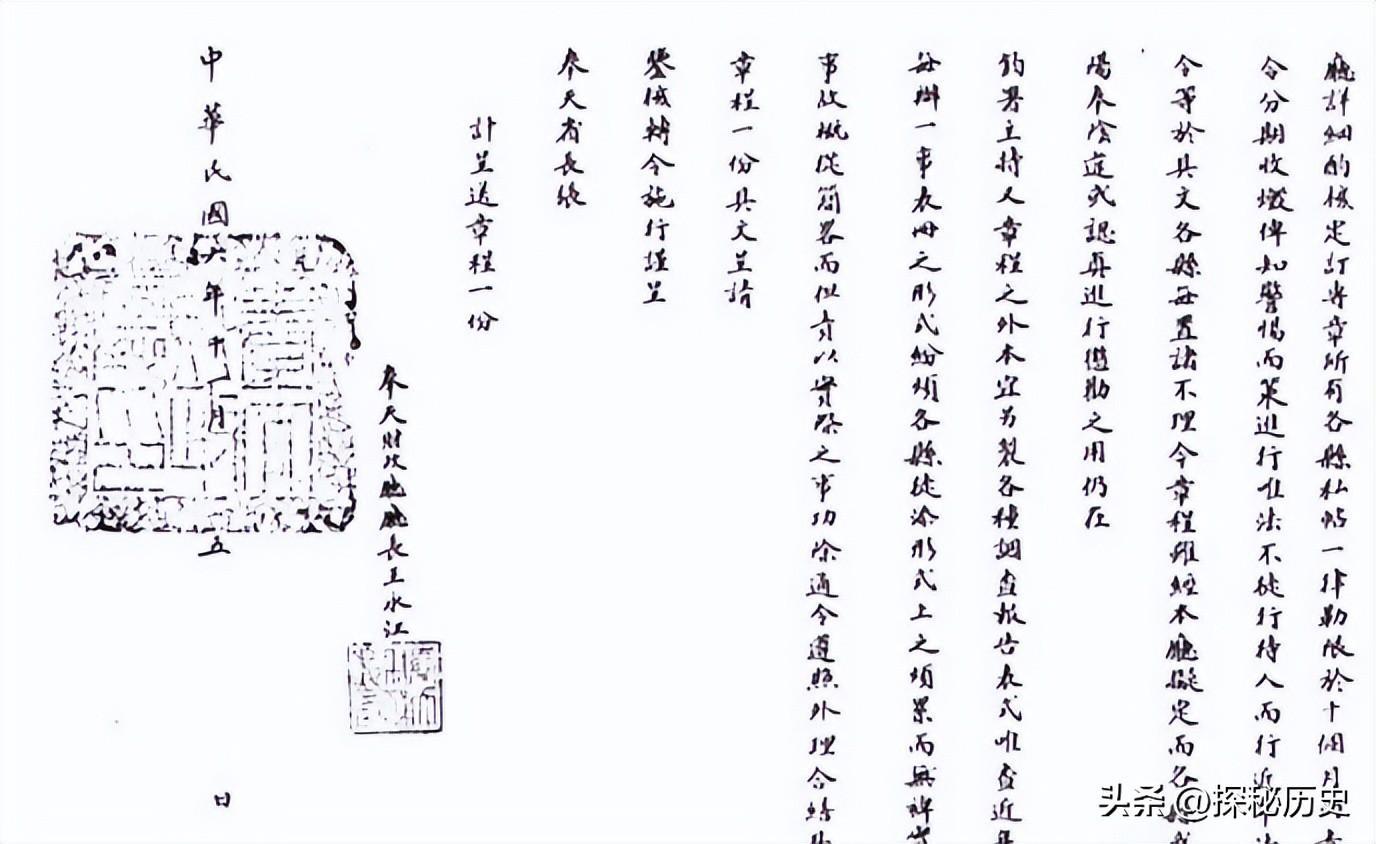 廳詳細酌核定訂專章所有各縣私帖一律勒限於十個月
令分期收燬俾知警惕而策進行唯法不徒行待人而行近
令等於具文各縣每置諸不理今章程雖經本廳擬定而各
陽奉陰違或認真進行懲勸之用仍在
鈞署主持又章程之外本宜另製各種調查報告表式唯查近
每辦一事表冊之形式紛煩各縣徒添形式上之煩累而無裨
事故概從簡略而但責以實際之事功除通令遵照外理合繕
章程一份具文呈請
鑒核轉令施行謹呈
奉天省長張
計呈送章程一份
奉天財政廳廳長王永江
中華民國六年十月五日
头条 @探秘历史